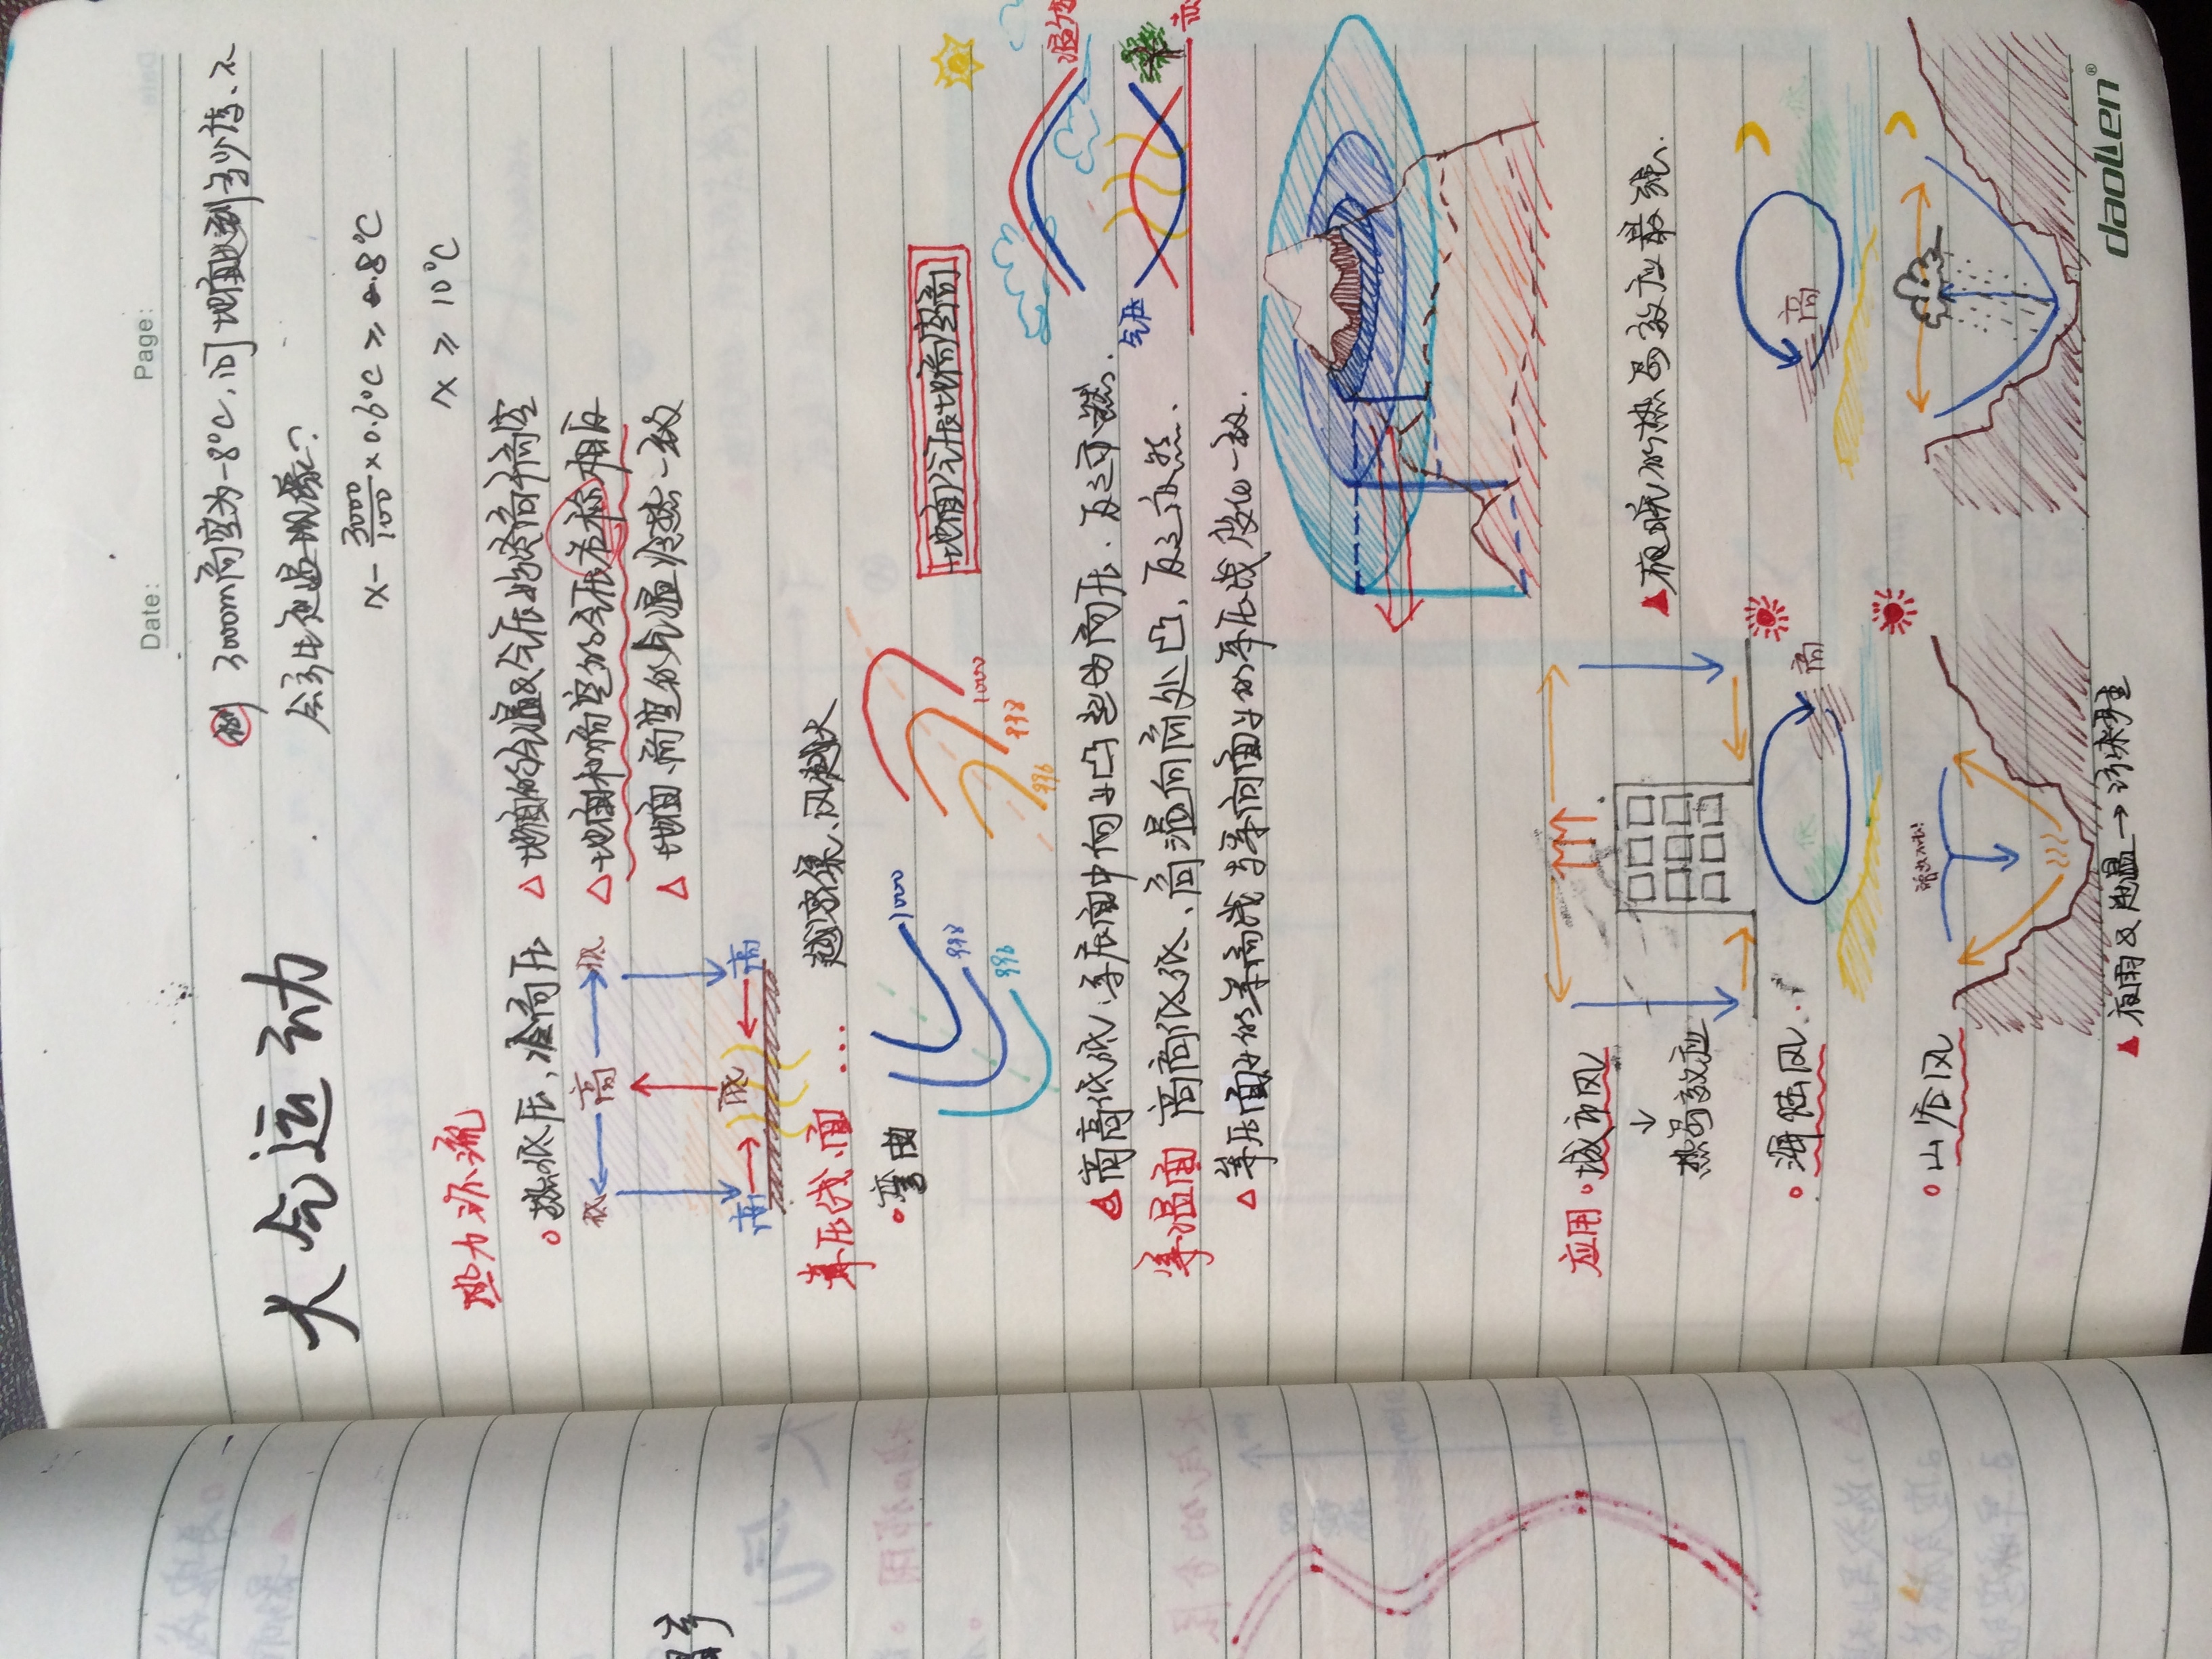 Date: Page:
例 3000m高空为-8°C,问地面达到多少度、不
会产生逆温现象?
大气运动
x - 3000/100 × 0.6°C ≥ -8°C
x ≥ 10°C
热力环流
热低压,冷高压
△ 地面的气温&气压始终高于高空
低 高 低
△ 地面和高空的气压名称相反
△ 地面、高空的气温冷热一致
高 低 高
等压线、面 ... 越密集、风越大
弯曲
1000
998
996
1000
998
996
地面气压比高空高
△ 高高低低、等压面中向上凸起为高压.反之亦然.
气压
等温面 高高低低、高温向高处凸,反之亦然.
△ 等压面上的等高线与等高面上的等压线变化一致.
应用 城市风
↓
热岛效应
▲ 夜晚的热岛效应最强.
海陆风.
低 高
高
山谷风
▲ 夜雨&逆温→污染
daolen®